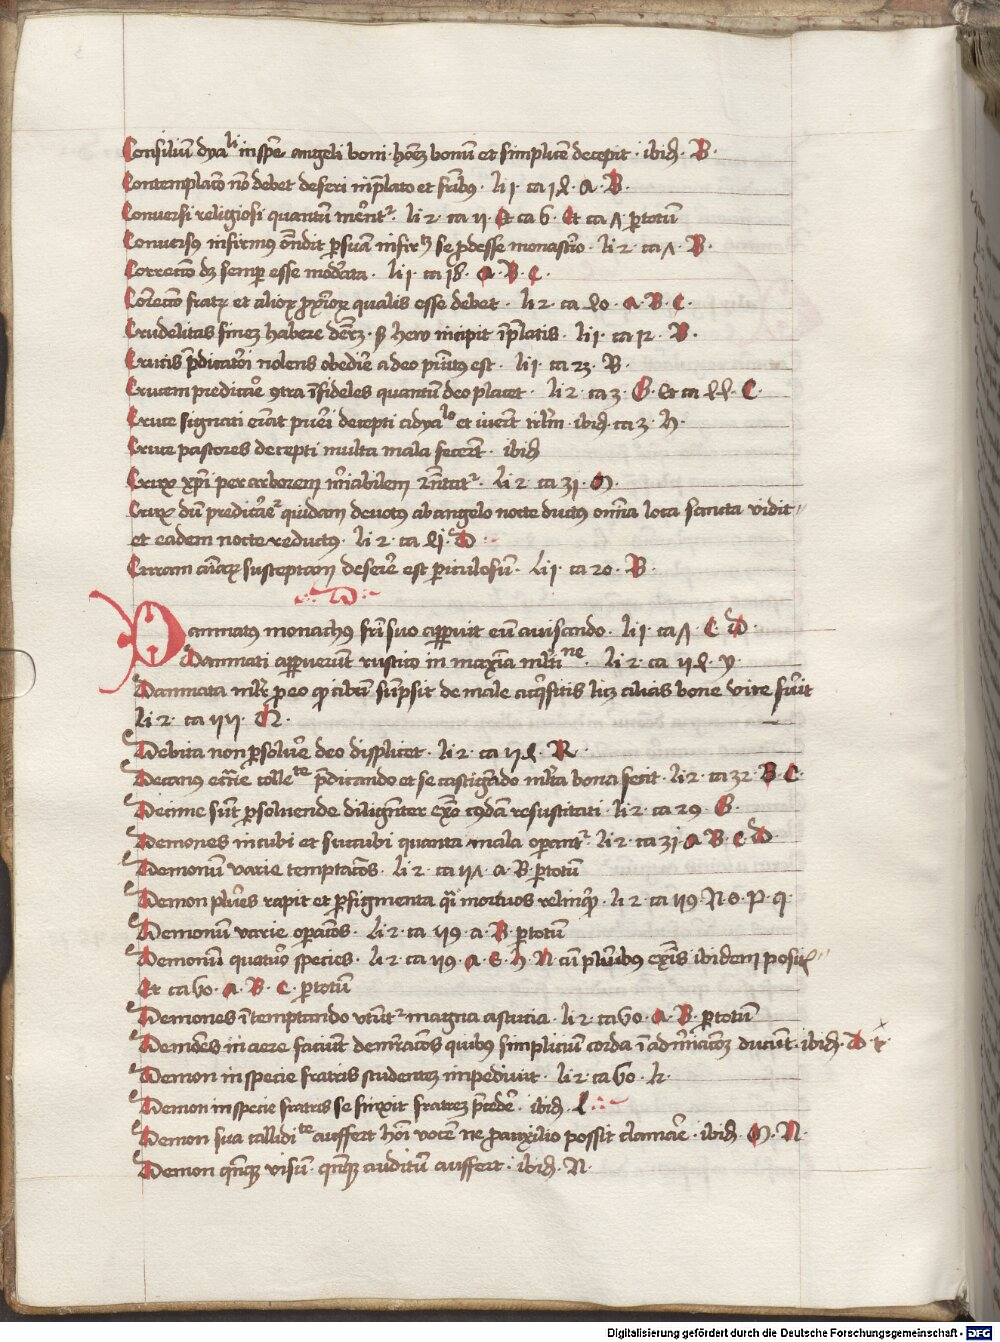 Consiliū dyaˡⁱ in spē angeli boni hoīez bonū et simplicē decepit · ibid · B ·
Contemplacō nō debet deseri in p̄lato et fr̄ibus · li 1 · ca 18 · A · B ·
Conversi religiosi quantū merētʳ · li 2 · ca 11 · Et ca 6 · Et ca 7 p totū
Conversꝯ infirmus ōndit p suam infirᵗᶻ se pdesse monastio · li 2 · ca 7 · B ·
Correctō dꝫ semp esse mod'ata · li 1 · ca 18 · A · B · C ·
Correctō fratꝝ et alioꝝ pximoꝝ qualis esse debet · li 2 · ca 40 · A · B · C ·
Crudelitas finez habere · li 1 · ca 12 · B ·
Crucis p̄dicatori nolens obedire a deo punitꝯ est · li 1 · ca 23 · B ·
Crucem predicare 9tra īfideles quantū deo placet · li 2 · ca 3 · G · Et ca 44 · C ·
Cruce signati erāt pueri decepti a dyaˡᵒ et · ibid ca 3 · h ·
Cruce pastores decepti multa mala fecerūt · ibid
Crux xp̄i per arborem mirabilem · li 2 · ca 31 · M ·
Crux dū predicaretʳ quidam devotꝯ ab angelo nocte ductꝯ omīa loca sancta vidit
et eadem nocte reductꝯ · li 2 · ca 41 · D
Curam aīarꝝ susceptam deserē est periculosū · li 1 · ca 20 · B ·
· D ·
Damnatꝯ monachus fr̄i suo apparuit eū avisando · li 1 · ca 7 · C · D ·
Damnati apparuerunt rustico in maxīa mltiⁿᵉ · li 2 · ca 114 · y ·
Damnata ml'r p eo q cibū sūpsit de male acq̄sitis licꝫ alias bone vite fuit
li 2 · ca
Debita non psolvē deo displicet · li 2 · ca 114 · R ·
Decanꝯ p̄dicando et se castigādo ml'ta bona fecit · li 2 · ca 32 · B · C ·
Decime sūt psolvende diligent' exō cꝯdam resuscitati · li 2 · ca 29 · G ·
Demones incubi et succubi quanta mala operantʳ · li 2 · ca 31 · A · B · C · D ·
Demonū varie temptacōs · li 2 · ca 117 · A · B · p totū
Demon plures rapit et p figmenta q̄i mortuos relinq̄t · li 2 · ca 119 · N · O · P · q ·
Demonū varie opacōs · li 2 · ca 119 · a · B · p totū
Demonū quatuor species · li 2 · ca 119 · A · G · h · N · cū plībus exīs ibidem posit
Et ca 60 · A · B · C · p totū
Demones ī temptando utūtʳ magna astucia · li 2 · ca 60 · A · B · p totū
Demones in aere faciūt quibus simpliciū corda ī admiracōez ducūt · ibid · D ·
Demon in specie fratris studentez impedivit · li 2 · ca 60 · k ·
Demon in specie fratris se finxit fratrez p̄cedē · ibid · l
Demon sua callidiᵗᵉ auffert hoi vocem ne p auxilio possit clamare · ibid · M · N ·
Demon qn̄qꝫ visū · qn̄qꝫ auditū auffert · ibid · N ·
Digitalisierung gefördert durch die Deutsche Forschungsgemeinschaft - DFG